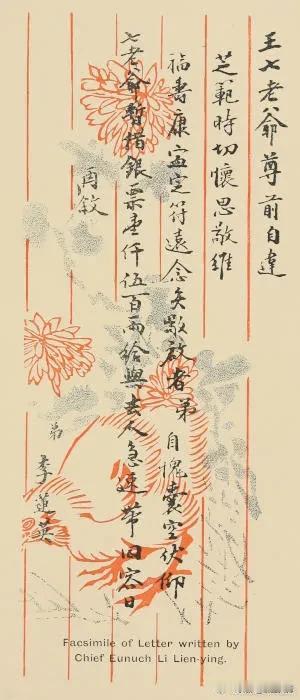 王七老爺尊前自違
芝範時切懷思敬維
福壽康寍定符遠念矣敬啟者弟自愧囊空伏仰
七老爺暫措銀票壹仟伍百兩給與去人急速帶回容日
再敘
弟
李蓮英
Facsimile of Letter written by
Chief Eunuch Li Lien-ying.